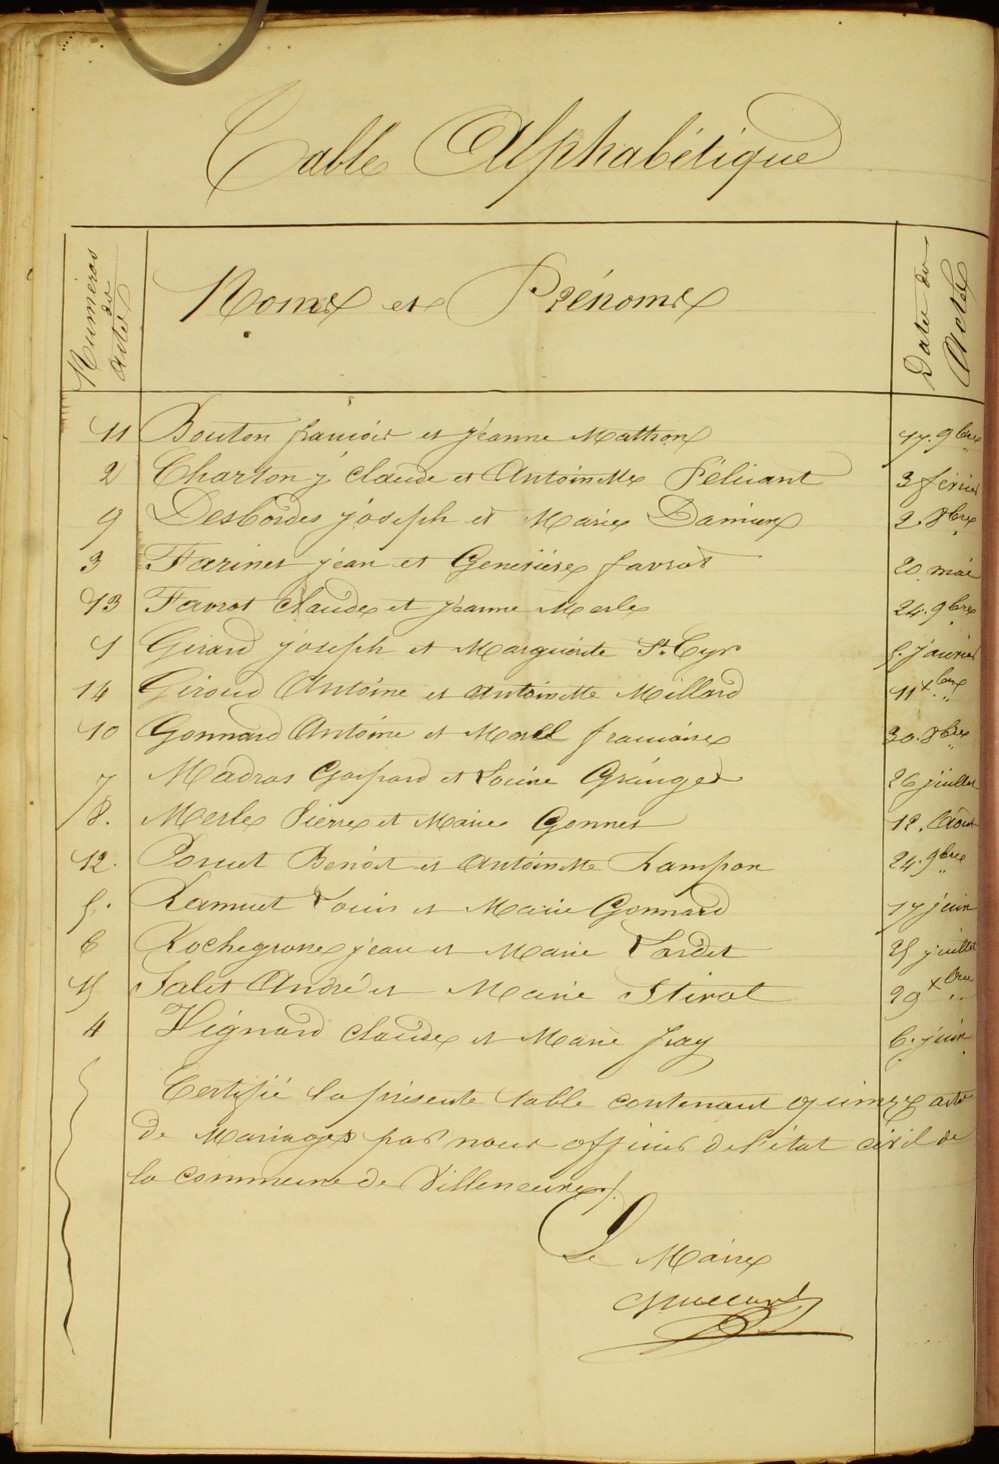 Table Alphabétique
Numéros des actes
Noms et Prénoms
Date des Actes
11 Bouton françois et jeanne Mathon 17. 9bre
2 Charton j. claude et Antoinette Féliciant 3 février
9 Desbordes joseph et Marie Damien 2. 8bre
3 Farines jean et Geneviève favrot 20 mai
13 Favrot claude et jeanne Merle 24. 9bre
1 Girard joseph et Marguerite St. Cyr 5. janvier
14 Giroud Antoine et antoinette Millard 11 xbre
10 Gonnard Antoine et Morel françoise 30. 8bre
7 Madras Gaspard et Louise Granger 26 juillet
8. Merle Pierre et Marie Gonnet 12. Août
12. Benoit et Antoinette Rampon 24. 9bre
5. Ramuet Louis et Marie Gonnard 17 juin
6 Rochegrosse jean et Marie Lardet 25 juillet
15 Salet André et Marie 29 xbre
4 Vignard claude et Marie fray 6. juin
Certifié la présente table contenant quinze actes
de Mariages par nous officier de l'état civil de
la commune de Villeneuve ./.
Le Maire